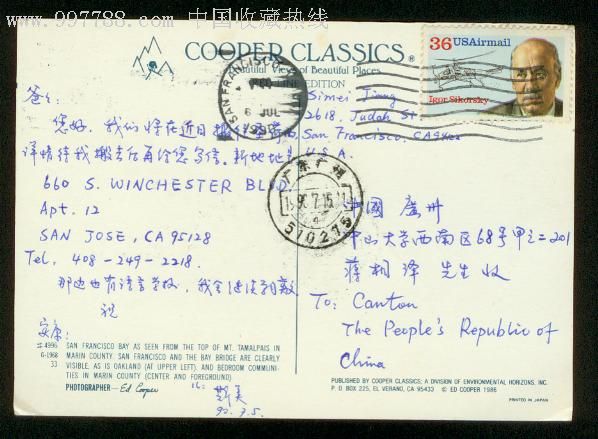 www.997788.com 中国收藏热线
COOPER CLASSICS®
Beautiful Views of Beautiful Places
LINE EDITION
36 USAirmail
Igor Sikorsky
SAN FRANCISCO
6 JUL
1990
Simei Jiang
2618. Judah St
San Francisco, CA94122
U.S.A.
爸:
您好. 我们将在近日搬往
详情待我搬去后再给您写信. 新地址是
660 S. WINCHESTER BLVD.
Apt. 12
SAN JOSE, CA 95128
Tel. 408-249-2218.
那边也有语言学校, 我会继续
祝
安康!
斯美
90.7.5.
广东广州
90.7.15
510275
中國 廣州
中山大学西南区68号甲之二201
蒋相泽 先生 收
To: Canton
The People's Republic of
China
#4996
G-1968
33
SAN FRANCISCO BAY AS SEEN FROM THE TOP OF MT. TAMALPAIS IN
MARIN COUNTY. SAN FRANCISCO AND THE BAY BRIDGE ARE CLEARLY
VISIBLE. AS IS OAKLAND (AT UPPER LEFT), AND BEDROOM COMMUNI-
TIES IN MARIN COUNTY (CENTER AND FOREGROUND).
PHOTOGRAPHER—Ed Cooper
PUBLISHED BY COOPER CLASSICS; A DIVISION OF ENVIRONMENTAL HORIZONS, INC.
P. O BOX 225, EL VERANO, CA. 95433 © ED COOPER 1986
PRINTED IN JAPAN